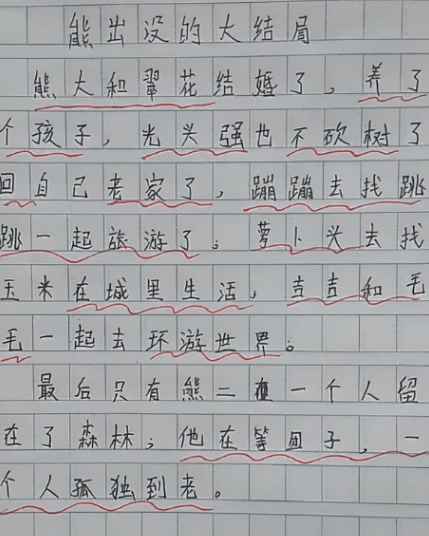 熊出没的大结局
熊大和翠花结婚了，养了
个孩子，光头强也不砍树了
回自己老家了，蹦蹦去找跳
跳一起旅游了；萝卜头去找
玉米在城里生活，吉吉和毛
毛一起去环游世界。
最后只有熊二在一个人留
在了森林；他在等团子，一
个人孤独到老。